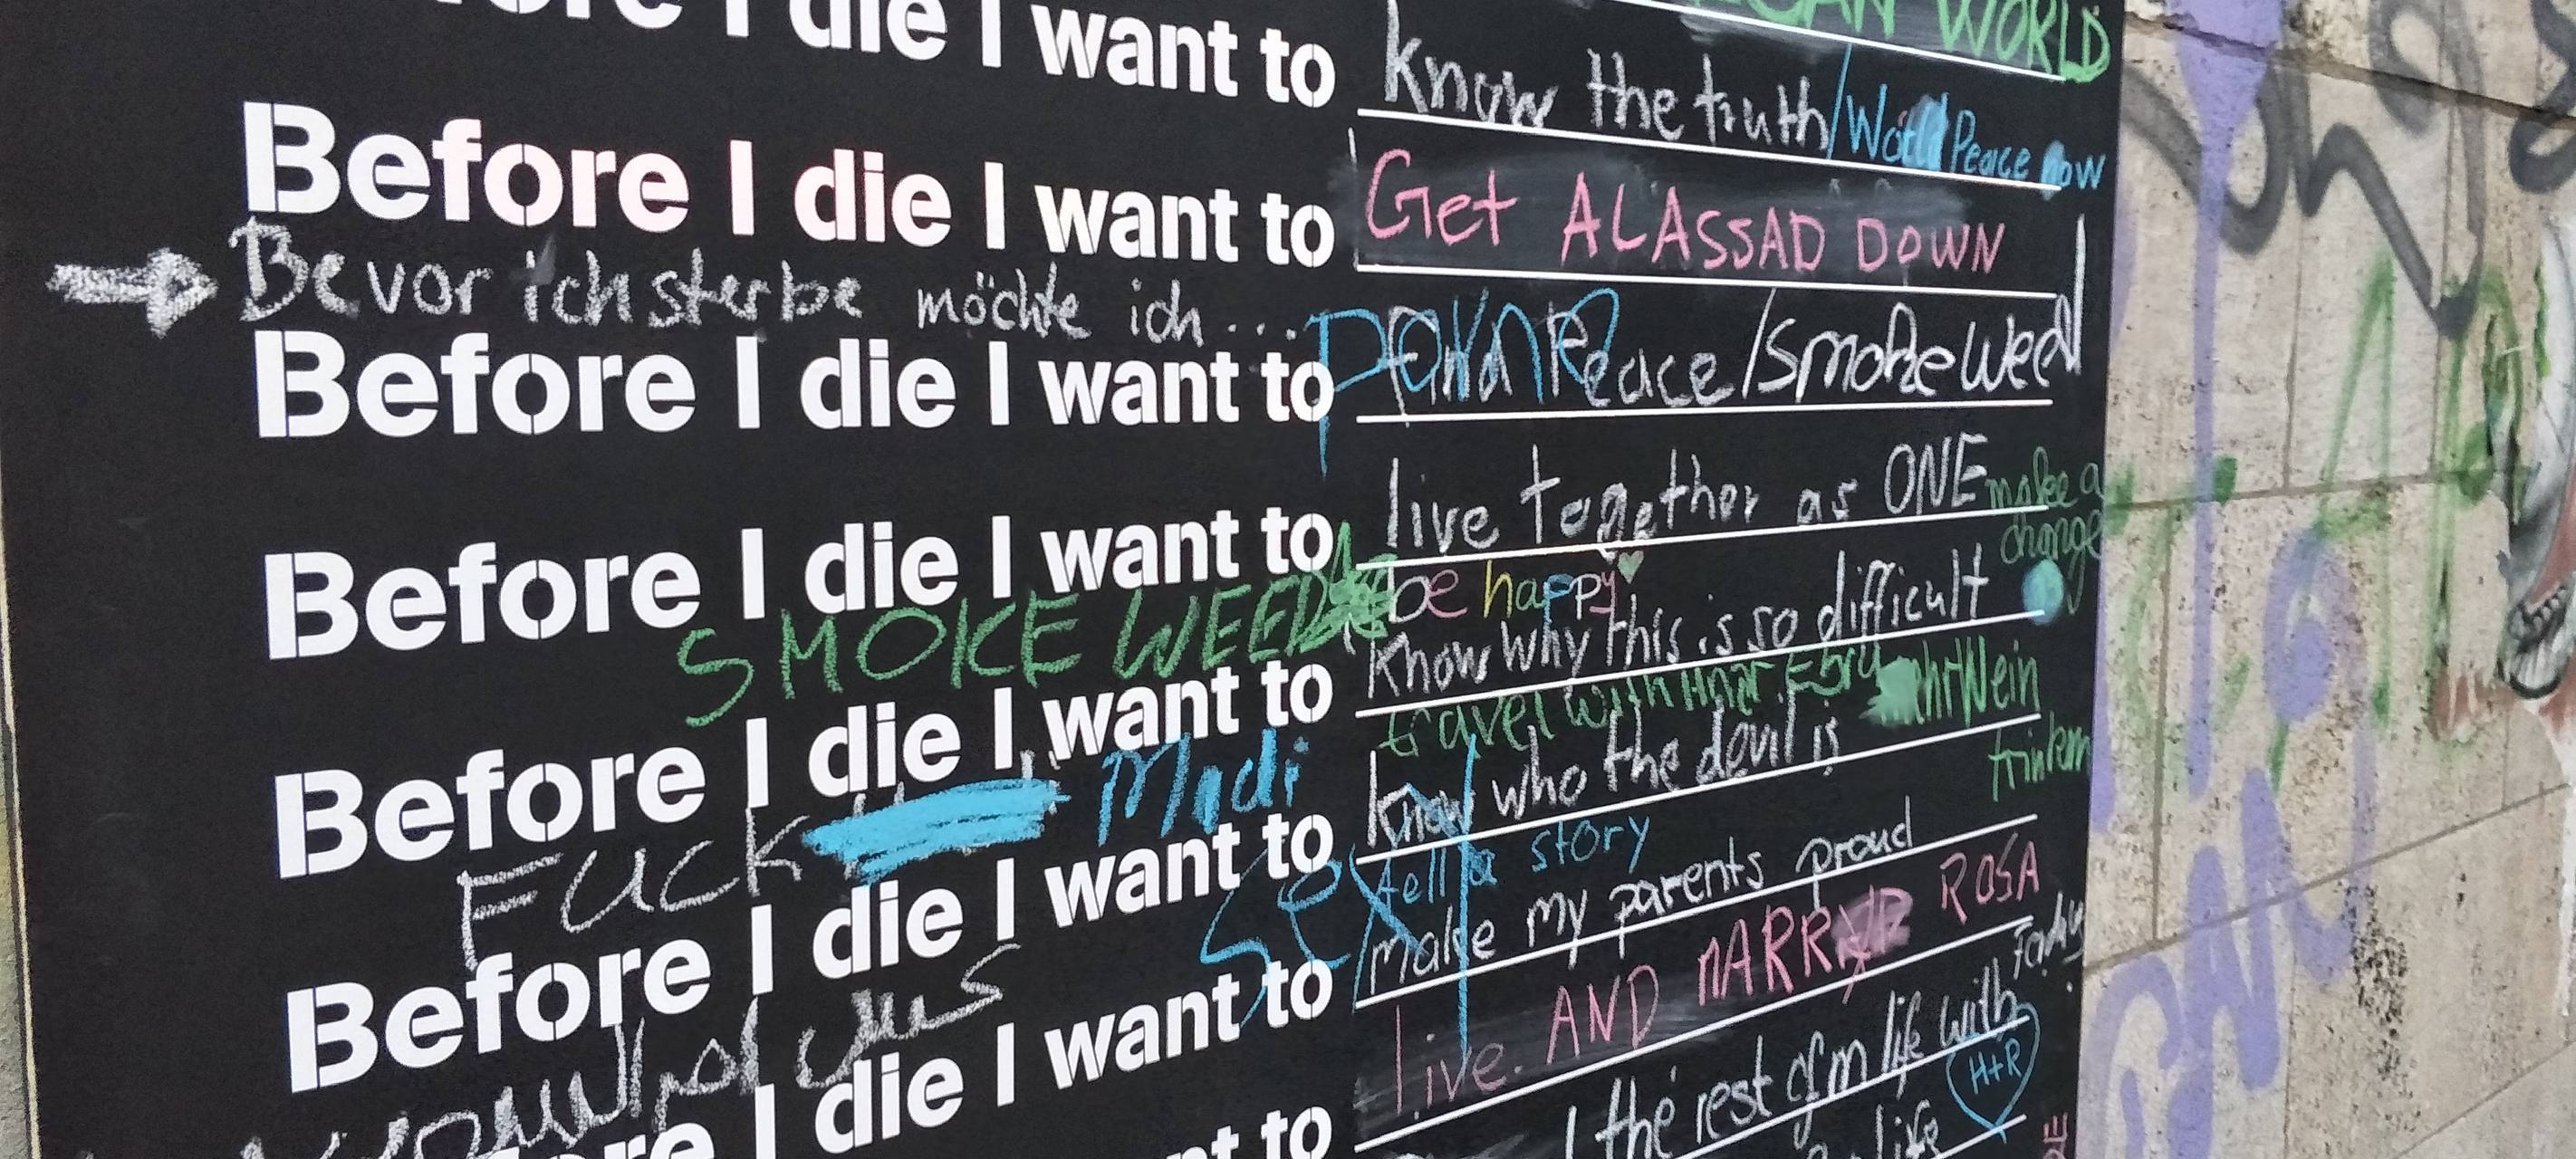 VEGAN WORLD
Before I die I want to know the truth / World Peace now
Before I die I want to Get ALASSAD DOWN
Bevor ich sterbe möchte ich...
Before I die I want to find Peace / smoke weed
Before I die I want to live together as ONE
make a change
be happy
SMOKE WEED
Before I die I want to know why this is so difficult
travel with
Wein
trinken
FUCK
Modi
Before I die I want to know who the devil is
tell a story
SEX
Before I die I want to make my parents proud
die I want to live. AND MARRY ROSA
the rest of m life with
today
H+R
life